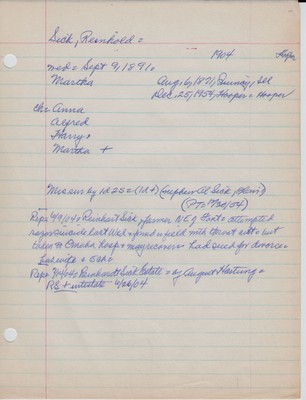 Sick, Reinhold =
1904 Hooper
med = Sept 9, 1891 =
Martha Aug. 6, 1871, Quincy, Ill
Dec. 25, 1954, Hooper = Hooper
ch: Anna
Alfred
Harry,
Martha +
Museum by 1925 = (1D+) (nephew Al Sick, Blair)
Reps 4/9/04 = Reinhart Sick, farmer NE of attempted
razor suicide last Wed = found in field with throat cut = but
taken to Omaha hosp = may recover = had sued for divorce =
had wife = 5 ch =
Reps 7/04 = Reinhardt Sick Estate = by August Hartung =
RE + intestate 4/26/04